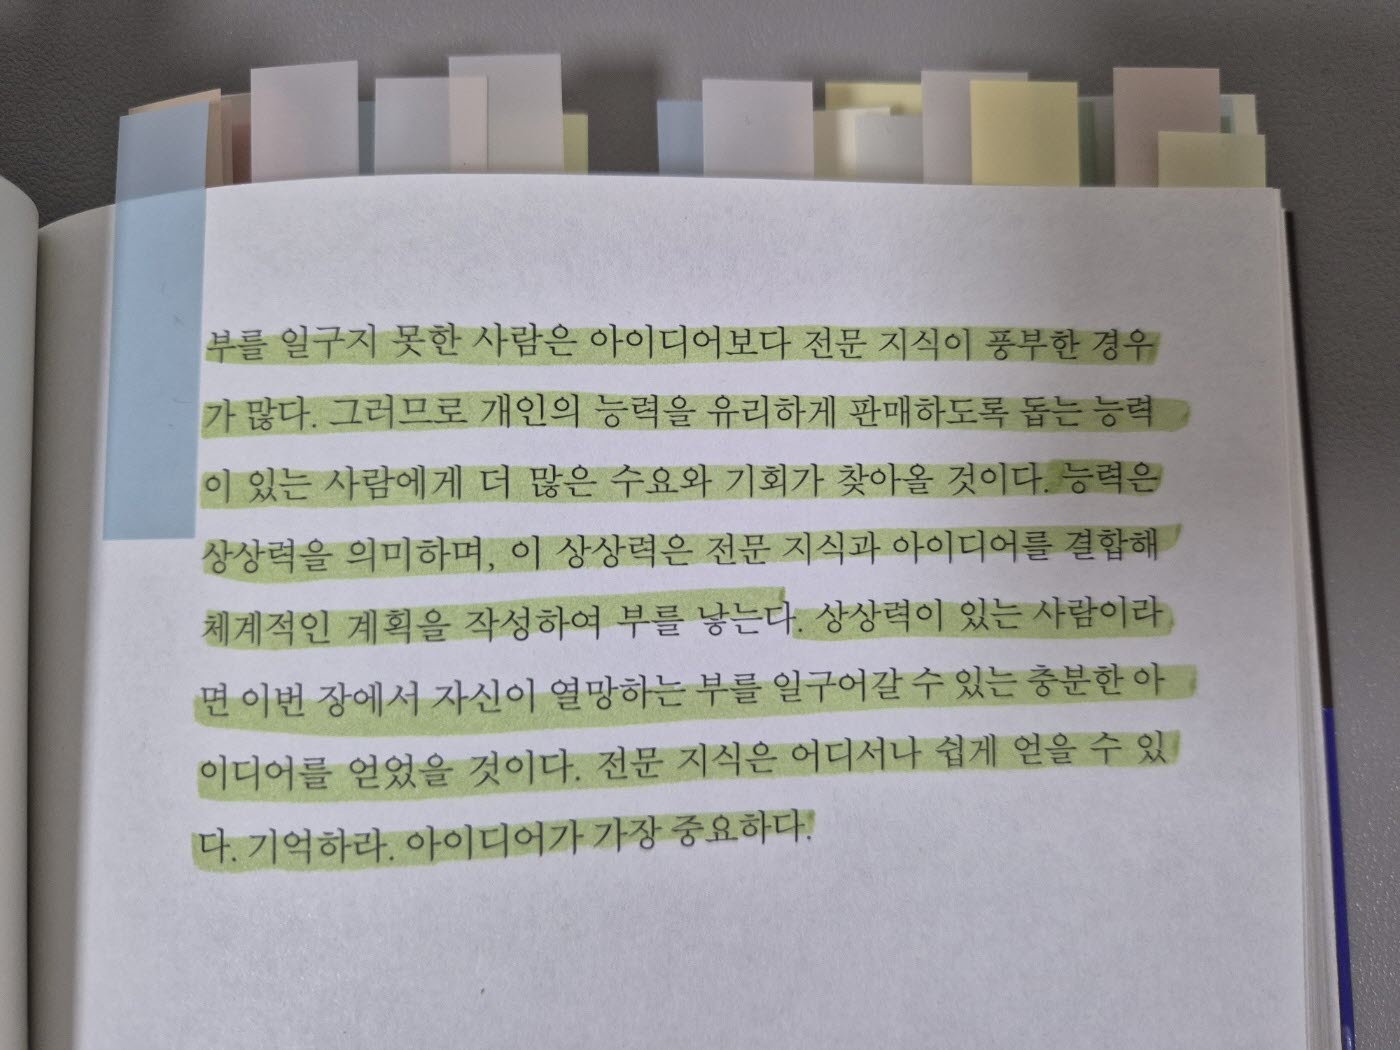 부를 일구지 못한 사람은 아이디어보다 전문 지식이 풍부한 경우
가 많다. 그러므로 개인의 능력을 유리하게 판매하도록 돕는 능력
이 있는 사람에게 더 많은 수요와 기회가 찾아올 것이다. 능력은
상상력을 의미하며, 이 상상력은 전문 지식과 아이디어를 결합해
체계적인 계획을 작성하여 부를 낳는다. 상상력이 있는 사람이라
면 이번 장에서 자신이 열망하는 부를 일구어갈 수 있는 충분한 아
이디어를 얻었을 것이다. 전문 지식은 어디서나 쉽게 얻을 수 있
다. 기억하라. 아이디어가 가장 중요하다.